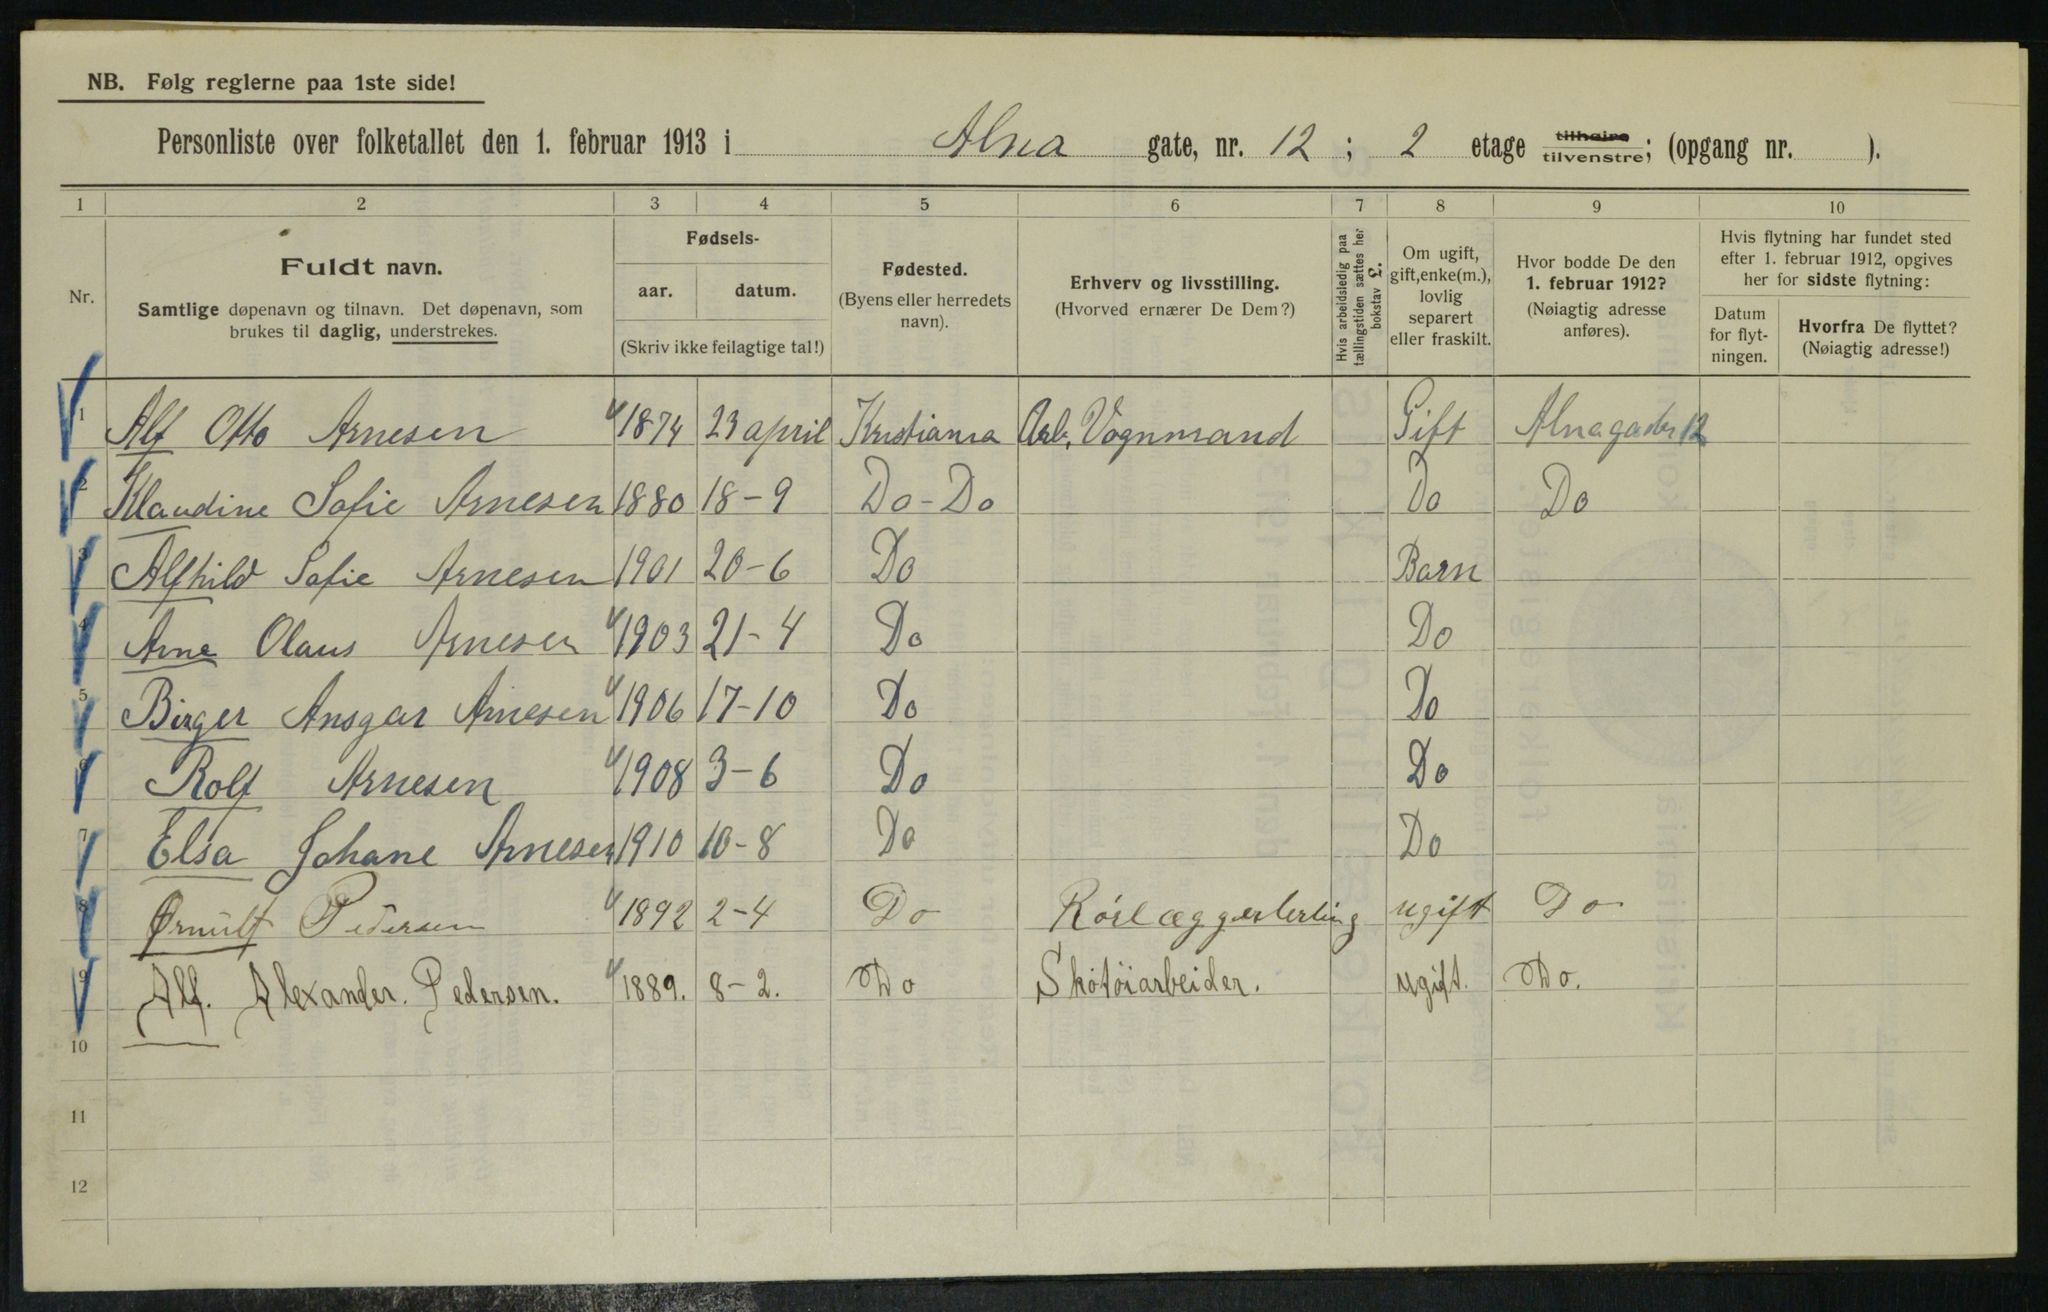 NB. Følg reglerne paa 1ste side!
Personliste over folketallet den 1. februar 1913 i Alna gate, nr. 12 ; 2 etage tilhøire tilvenstre; (opgang nr. ).
1 2 3 4 5 6 7 8 9 10
Nr.
Fuldt navn.
Samtlige døpenavn og tilnavn. Det døpenavn, som
brukes til daglig, understrekes.
Fødsels-
aar. datum.
(Skriv ikke feilagtige tal!)
Fødested.
(Byens eller herredets
navn).
Erhverv og livsstilling.
(Hvorved ernærer De Dem?)
Hvis arbeidsledig paa
tællingstiden sættes her
bokstav L.
Om ugift,
gift, enke(m.),
lovlig
separert
eller fraskilt.
Hvor bodde De den
1. februar 1912?
(Nøiagtig adresse
anføres).
Hvis flytning har fundet sted
efter 1. februar 1912, opgives
her for sidste flytning:
Datum
for flyt-
ningen.
Hvorfra De flyttet?
(Nøiagtig adresse!)
1 Alf Otto Arnesen 1874 23 april Kristiania Arb. Vognmand Gift Alnagaden 12
2 Klaudine Sofie Arnesen 1880 18-9 Do-Do Do Do
3 Alfhild Sofie Arnesen 1901 20-6 Do Barn
4 Arne Olaus Arnesen 1903 21-4 Do Do
5 Birger Ansgar Arnesen 1906 17-10 Do Do
6 Rolf Arnesen 1908 3-6 Do Do
7 Elsa Johane Arnesen 1910 10-8 Do Do
8 Ørnulf Pedersen 1892 2-4 Do Rörlæggerlerling ugift Do
9 Alf. Alexander. Pedersen. 1889. 8-2. Do Skotöiarbeider. ugift. Do.
10
11
12